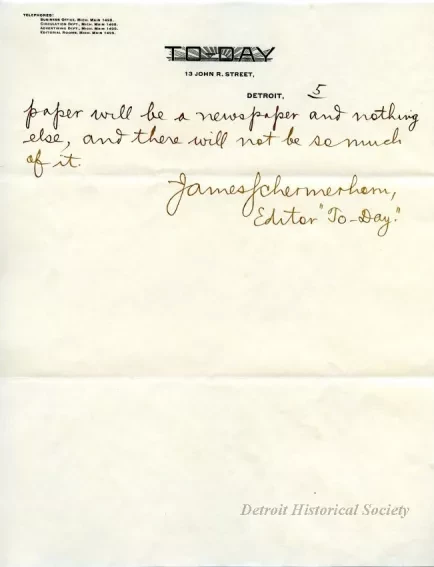 TELEPHONES:
BUSINESS OFFICE, MICH. MAIN 1492.
CIRCULATION DEPT., MICH. MAIN 1493.
ADVERTISING DEPT., MICH. MAIN 1493.
EDITORIAL ROOMS, MICH. MAIN 1495.
TO-DAY
13 JOHN R. STREET,
DETROIT, 5
paper will be a newspaper and nothing
else, and there will not be so much
of it.
James Schermerhorn,
Editor "To-Day."
Detroit Historical Society